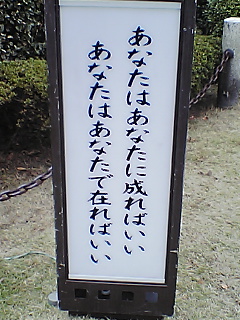 あなたはあなたに成ればいい
あなたはあなたで在ればいい